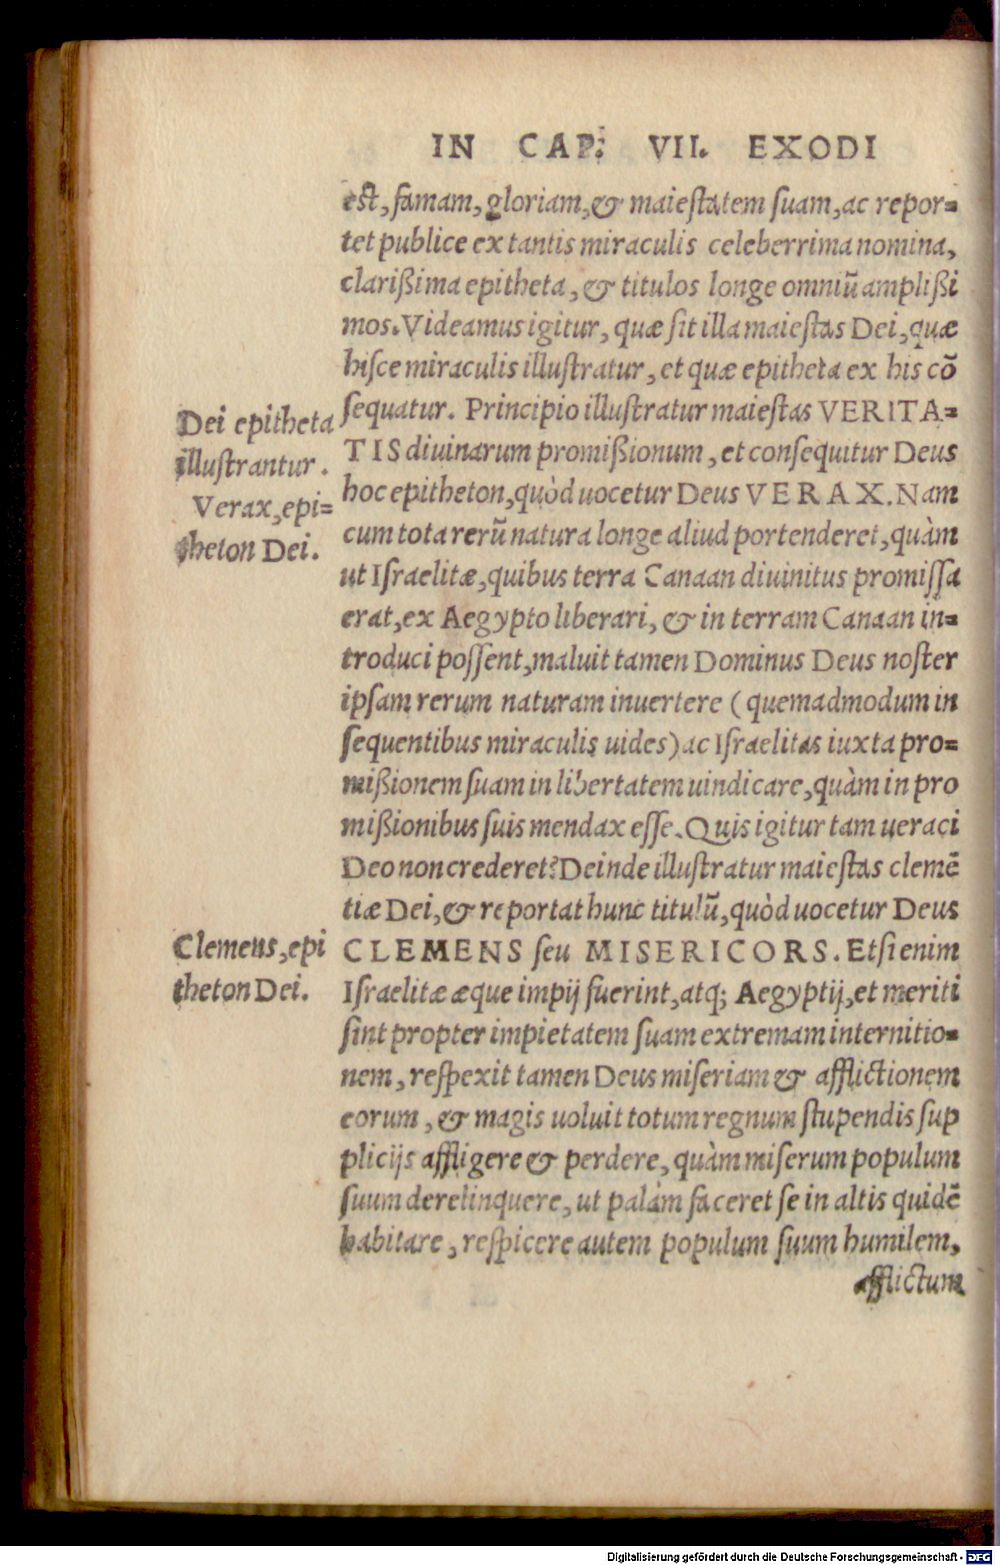 IN CAP. VII. EXODI
est, famam, gloriam, & maiestatem suam, ac repor=
tet publice ex tantis miraculis celeberrima nomina,
clarißima epitheta, & titulos longe omniũ amplißi
mos. Videamus igitur, quæ sit illa maiestas Dei, quæ
hisce miraculis illustratur, et quæ epitheta ex his cõ
sequatur. Principio illustratur maiestas VERITA=
TIS diuinarum promißionum, et consequitur Deus
hoc epitheton, quòd uocetur Deus VERAX. Nam
cum tota rerũ natura longe aliud portenderet, quàm
ut Israelitæ, quibus terra Canaan diuinitus promissa
erat, ex Aegypto liberari, & in terram Canaan in=
troduci possent, maluit tamen Dominus Deus noster
ipsam rerum naturam inuertere (quemadmodum in
sequentibus miraculis uides) ac Israelitas iuxta pro=
mißionem suam in libertatem uindicare, quàm in pro
mißionibus suis mendax esse. Quis igitur tam ueraci
Deo non crederet? Deinde illustratur maiestas clemẽ
tiæ Dei, & reportat hunc titulũ, quòd uocetur Deus
CLEMENS seu MISERICORS. Etsi enim
Israelitæ æque impij fuerint, atq; Aegyptij, et meriti
sint propter impietatem suam extremam internitio=
nem, respexit tamen Deus miseriam & afflictionem
eorum, & magis uoluit totum regnum stupendis sup
plicijs affligere & perdere, quàm miserum populum
suum derelinquere, ut palàm faceret se in altis quidẽ
habitare, respicere autem populum suum humilem,
afflictum
Dei epitheta
illustrantur.
Verax, epi=
theton Dei.
Clemens, epi
theton Dei.
Digitalisierung gefördert durch die Deutsche Forschungsgemeinschaft - DFG